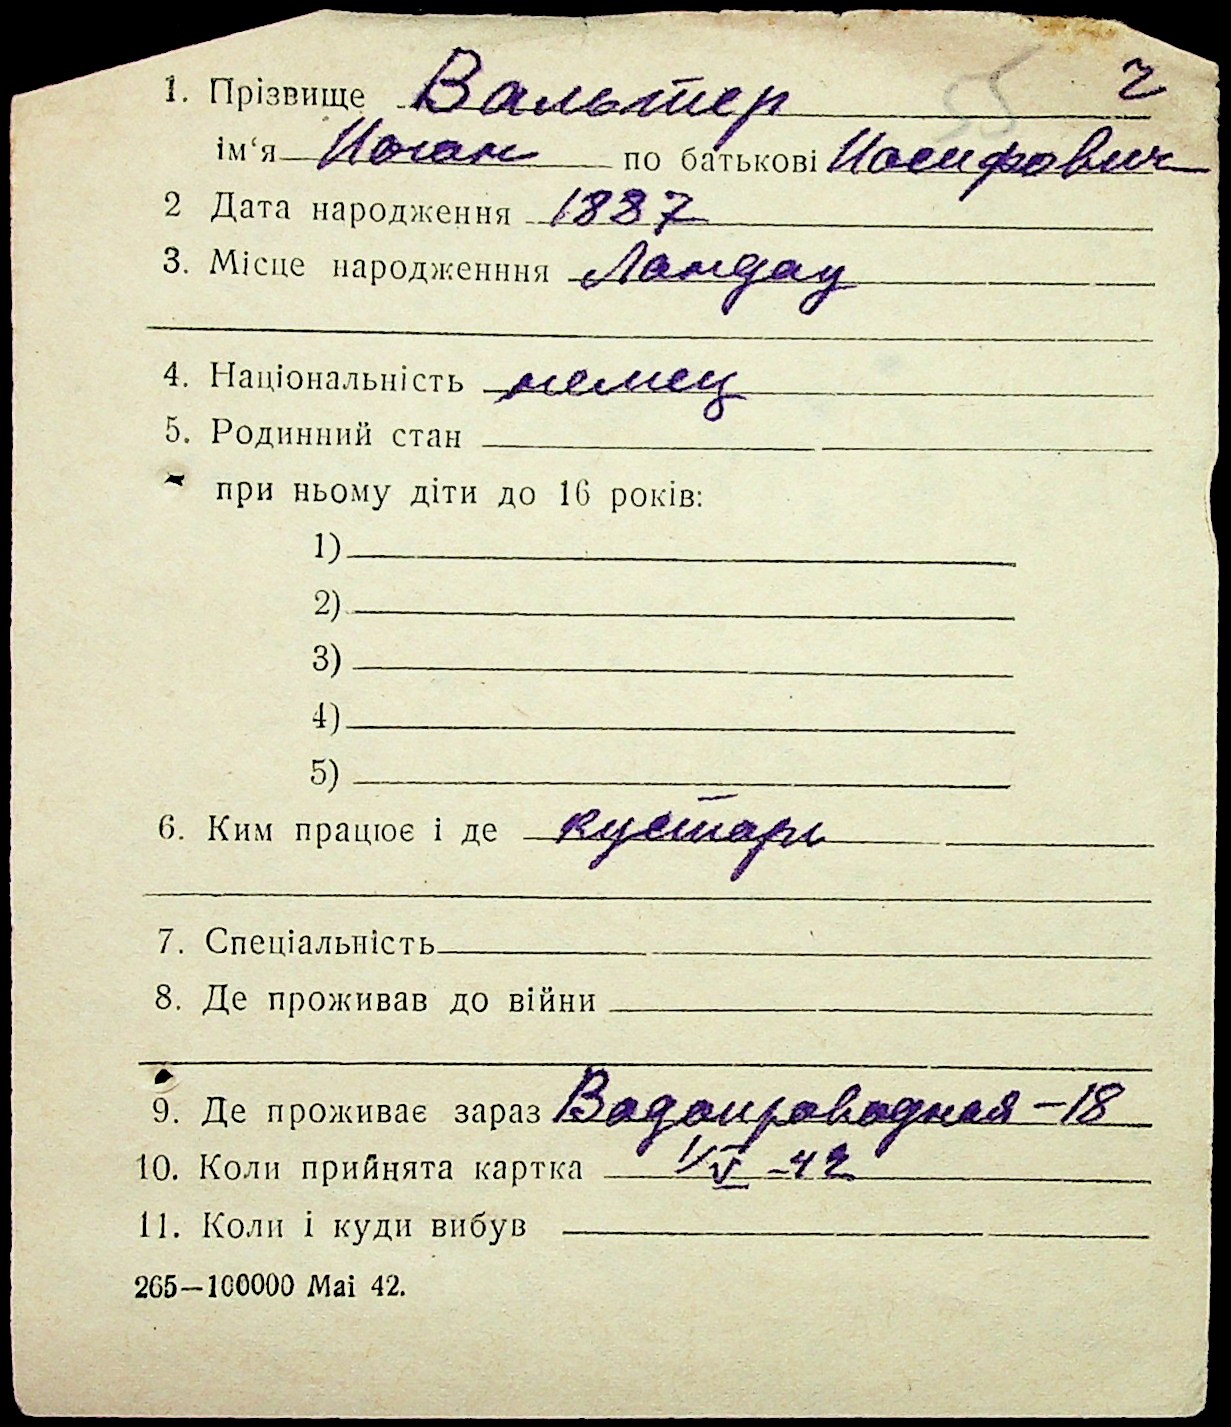 55 г
1. Прізвище Вальтер
ім‘я Иоган по батькові Иосифович
2 Дата народження 1887
3. Місце народженння Ландау
4. Національність немец
5. Родинний стан
при ньому діти до 16 років:
1)
2)
3)
4)
5)
6. Ким працює і де кустарь
7. Спеціальність
8. Де проживав до війни
9. Де проживає зараз Водопроводная – 18
10. Коли прийнята картка 1/V – 42
11. Коли і куди вибув
265—100000 Mai 42.